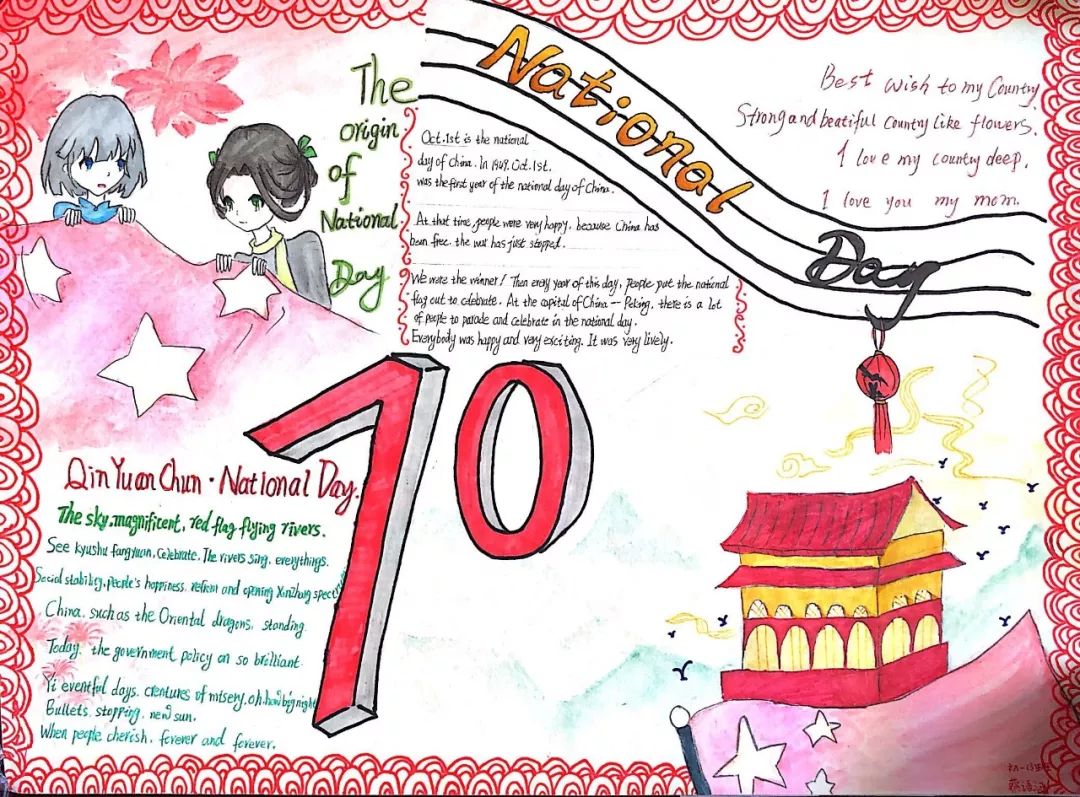 The
origin
of
National
Day
National
Day
Best wish to my Country,
Strong and beatiful Country like flowers.
I love my country deep.
I love you my mom.
Oct.1st is the national
day of China. In 1949. Oct.1st.
was the first year of the national day of China.
At that time, people were very happy, because China has
been free. the war has just stopped.
We were the winner! Then every year of this day, people put the national
flag out to celebrate. At the capital of China -- Peking, there is a lot
of people to parade and celebrate in the national day.
Everybody was happy and very exciting. It was very lively.
70
Qin Yuan Chun · National Day.
The sky, magnificent, red flag flying rivers.
See kyushu fangyuan, Celebrate. The rivers sing, everythings.
Social stability, people's happiness, reform and opening
China. such as the Oriental dragons, standing.
Today, the government policy on so brilliant
Yi eventful days. creatures of misery, oh, how big night
Bullets, stopping, new sun.
When people cherish, forever and forever.